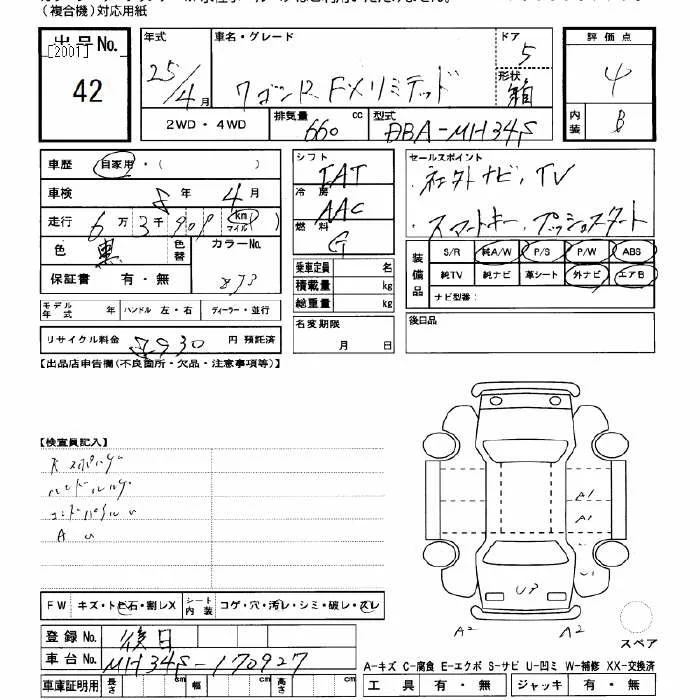 （複合機）対応用紙
出品No.
[2001]
42
年式
25/4月
車名・グレード
ワゴンR FXリミテッド
ドア
5
形状
箱
評価点
4
内装
B
2WD・4WD
排気量
660 cc
型式
DBA-MH34S
車歴 自家用・( )
車検 8年4月
走行 6万3千909 km マイル )
色 黒 色替 カラーNo.
保証書 有・無 Z73
モデル年式 年 ハンドル 左・右 ディーラー・並行
リサイクル料金 8930 円 預託済
シフト
IAT
冷房
AAC
燃料
G
乗車定員 名
積載量 kg
総重量 kg
名変期限
月 日
セールスポイント
・社外ナビ、TV
・スマートキー、プッシュスタート
装備品
S/R 純A/W P/S P/W ABS
純TV 純ナビ 革シート 外ナビ エアB
ナビ型番：
後日品
【出品店申告欄(不良箇所・欠品・注意事項等)】
【検査員記入】
A U
A1
A1
U3
A2
A2
スペア
FW キズ・トビ石・割レX シート内装 コゲ・穴・汚レ・シミ・破レ・スレ
登録No. 後日
車台No. MH34S-170927
車庫証明用 長さ cm 幅 cm 高さ cm
A-キズ C-腐食 E-エクボ S-サビ U-凹ミ W-補修 XX-交換済
工具 有・無 ジャッキ 有・無